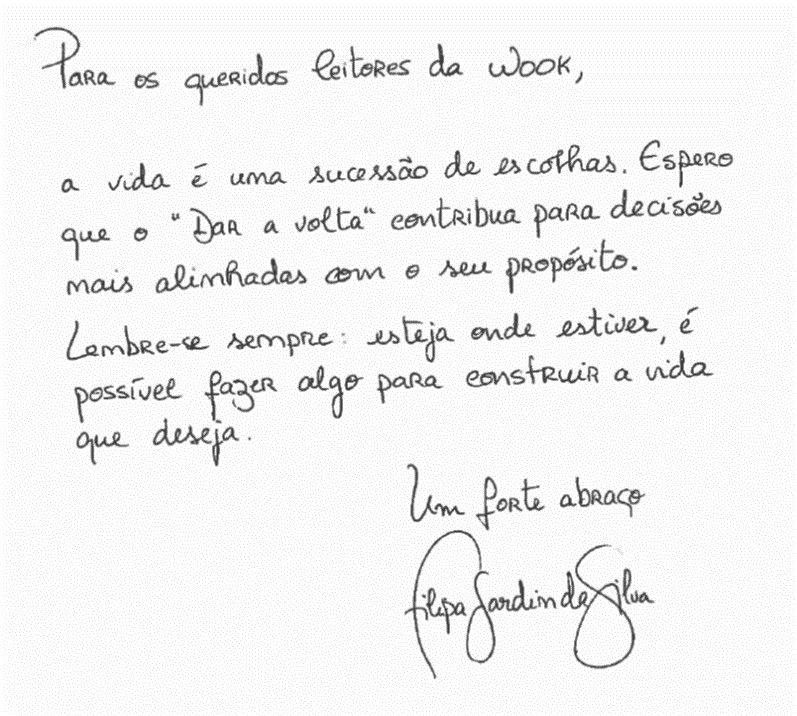 Para os queridos leitores da Wook,
a vida é uma sucessão de escolhas. Espero
que o "Dar a volta" contribua para decisões
mais alinhadas com o seu propósito.
Lembre-se sempre: esteja onde estiver, é
possível fazer algo para construir a vida
que deseja.
Um forte abraço
Filipa Jardim da Silva